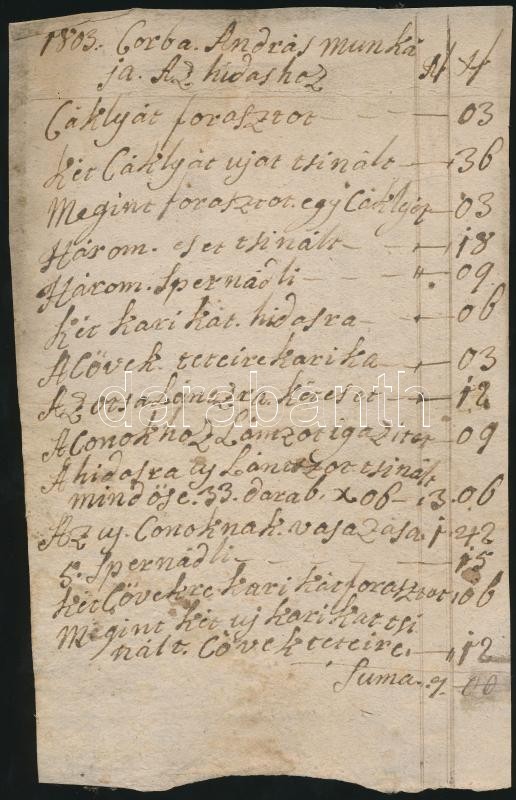 1803. Corba. András munká
ja. Az hidashoz xf xf
Cáklyát forasztot — 03
Két Cáklyát ujat tsinált — 36
Megint forasztot egy Cáklyát — 03
Három. eset tsinált — 18
Három. Spernádli — " 09
Két karikát. hidasra 06
A Cövek. teteire karika — 03
Az orsa Lánczra. két eset — 12
A Conokhoz Lámzot igazitot 09
A hidasra uj Lántzot tsinált
mind öse. 33. darab. x 06 — 3. 06
Az uj. Conoknak. vasazasa. 1. 42
5. Spernádli — 15
Két Cövekre karikát forasztot 06
Megint két uj karikat tsi
nált. Cövek teteire. — " 12
Suma. 7 — 00
darabanth